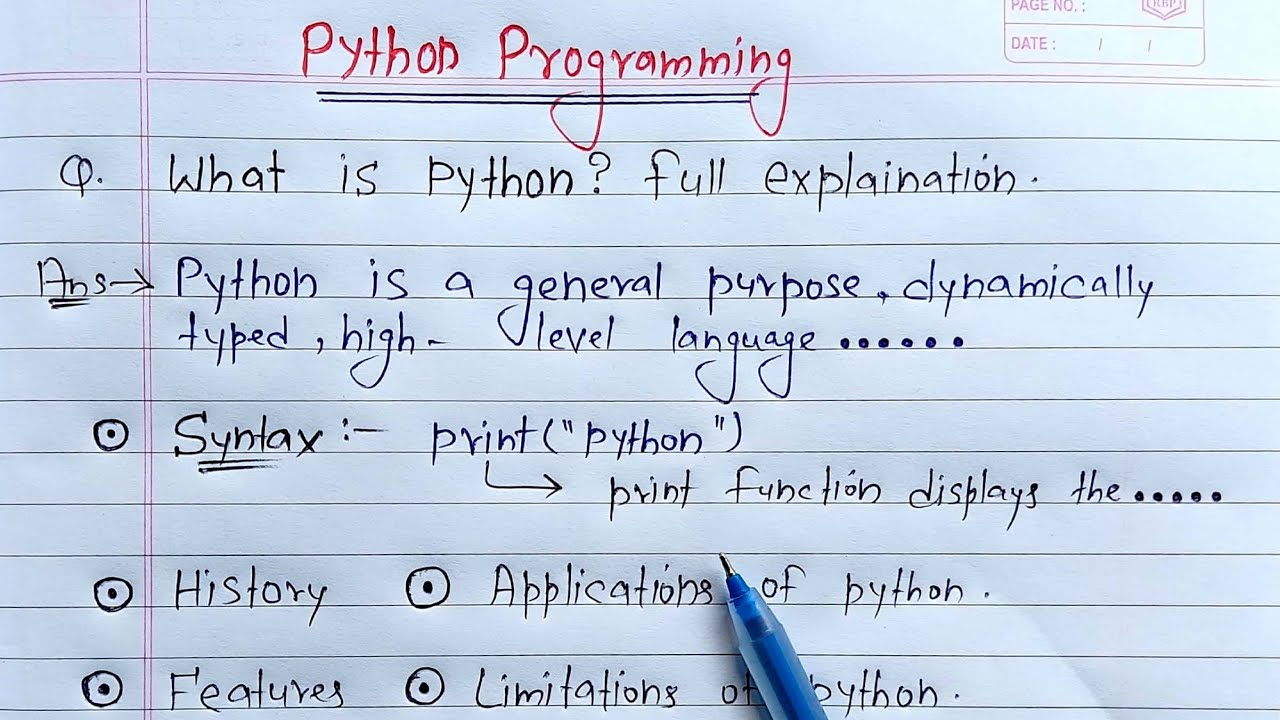 PAGE NO. :
RBP
DATE : / /
Python Programming
Q. What is python? full explaination.
Ans→ Python is a general purpose, dynamically
typed, high- level language ......
⊙ Syntax :- print("python")
↳ print function displays the .....
⊙ History ⊙ Applications of python.
⊙ Features ⊙ Limitations of python.